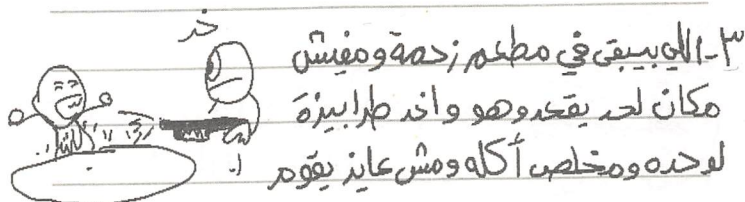 خد
٣- اللي بيبقى في مطعم زحمة ومفيش
مكان لحد يقعد وهو واخد طرابيزة
لوحده ومخلص أكله ومش عايز يقوم